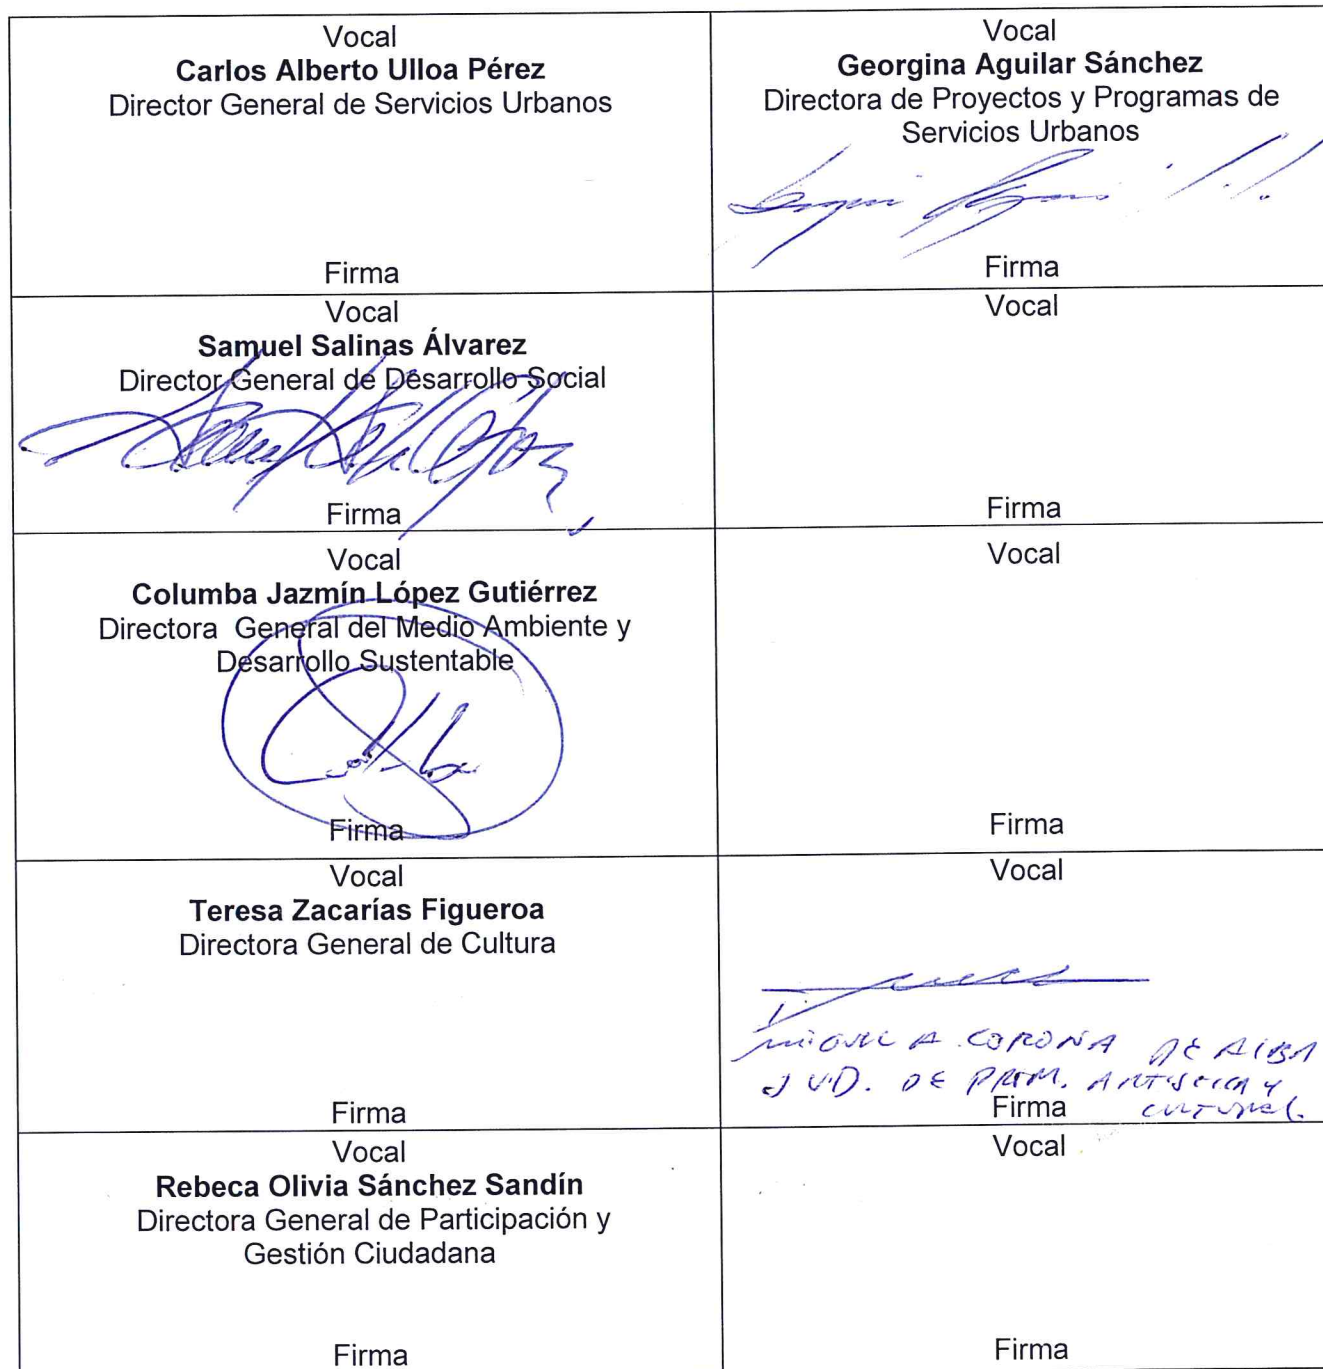 Vocal
Carlos Alberto Ulloa Pérez
Director General de Servicios Urbanos
Firma
Vocal
Georgina Aguilar Sánchez
Directora de Proyectos y Programas de
Servicios Urbanos
Firma
Vocal
Samuel Salinas Álvarez
Director General de Desarrollo Social
Firma
Vocal
Firma
Vocal
Columba Jazmín López Gutiérrez
Directora General del Medio Ambiente y
Desarrollo Sustentable
Firma
Vocal
Firma
Vocal
Teresa Zacarías Figueroa
Directora General de Cultura
Firma
Vocal
MIGUEL A. CORONA DE ALBA
JUD. DE PROM. ARTISTICA Y
CULTURAL.
Firma
Vocal
Rebeca Olivia Sánchez Sandín
Directora General de Participación y
Gestión Ciudadana
Firma
Vocal
Firma